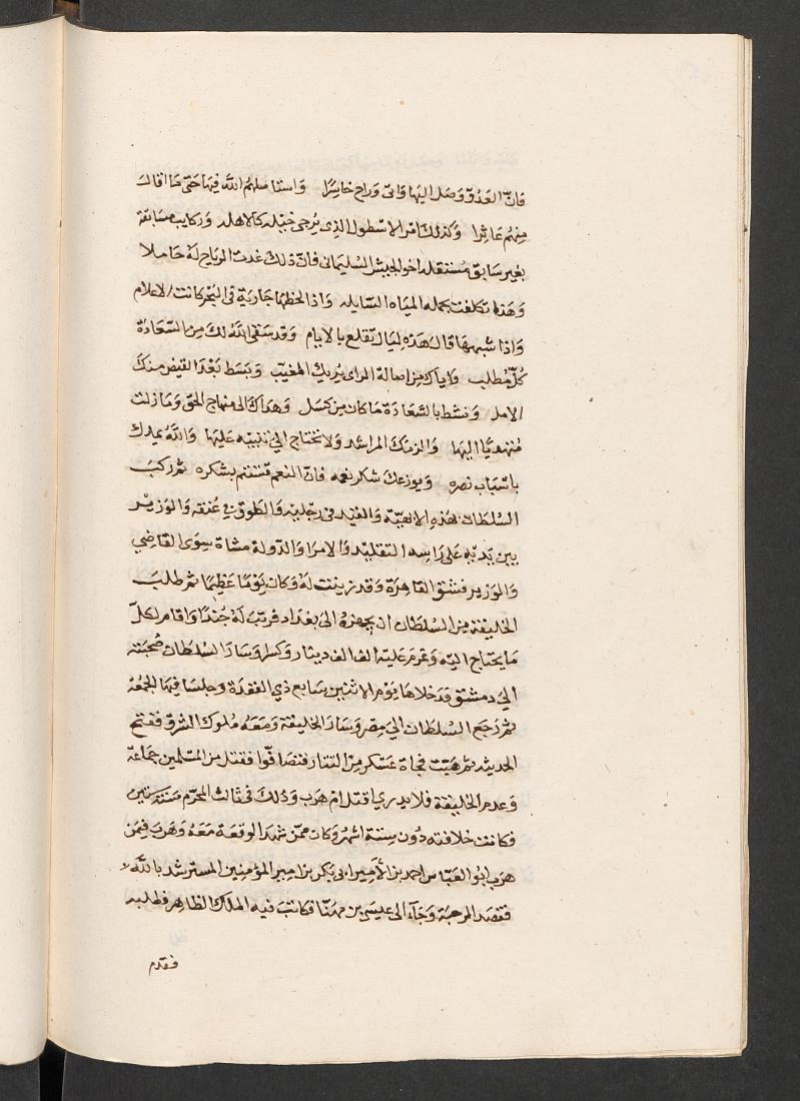 فان العدو وصل اليها واتى وراح خاسرا واستاصلهم الله فيها حتى ما اقال
منهم عاثرا وكذلك امر الاسطول الذي يرجى خيله كالاهله وركايبه سابقة
بغير سابق مستقله اخو الجيش السليماني فان ذلك غدت الرياح له حاملا
وهذا تكلفت بحمله المياه السايله واذا لحظها جارية في البحر كانت كالاعلام
واذا شبهها قال هذه ليال تقلع بالايام وقد سنى الله لك من السعادة
كل مطلب واياك من اصالة الراى يريك المغيب وبسط بعد القبض منك
الامل ونشط بالسعادة ما كان من كسل وهداك الى منهاج الحق وما زلت
مهتديا اليها والزمك المراشد ولا تحتاج الى تنبيه عليها والله يمدك
باسباب نصره ويوزعك شكر نعمه فان النعم تستتم بشكره ثم ركب
السلطان بهذه الابهة والقيد في رجليه والطوق في عنقه والوزير
بين يديه على راسه التقليد والامرا والدولة مشاة سوى القاضي
والوزير فشق القاهرة وقد زينت له وكان يوما عظيما ثم طلب
الخليفة من السلطان ان يجهزه الى بغداد فرتب له جندا واقام له كل
ما يحتاج اليه وغرم عليه الف الف دينار وكسر وسار السلطان صحبته
الى دمشق فدخلاها يوم الاثنين سابع ذي القعدة وجلسا فيها الجمعه
ثم رجع السلطان الى مصر وسار الخليفة ومعه ملوك الشرق ففتح
الحديثه ثم هيت فجاة عسكر من التتار فتصافوا فقتل من المسلمين جماعة
وعدم الخليفة فلا يدري اقتل ام هرب وذلك في ثالث المحرم سنة ستين
فكانت خلافته دون ستة اشهر وكان ممن شهد الوقعة معه وهرب فيمن
هرب ابو العباس احمد بن الأمير ابي بكر بن امير المؤمنين المسترشد بالله
فقصد الرحبة وجاء الى عيسى بن مهنا فكاتب فيه الملك الظاهر فطلبه
فقدم